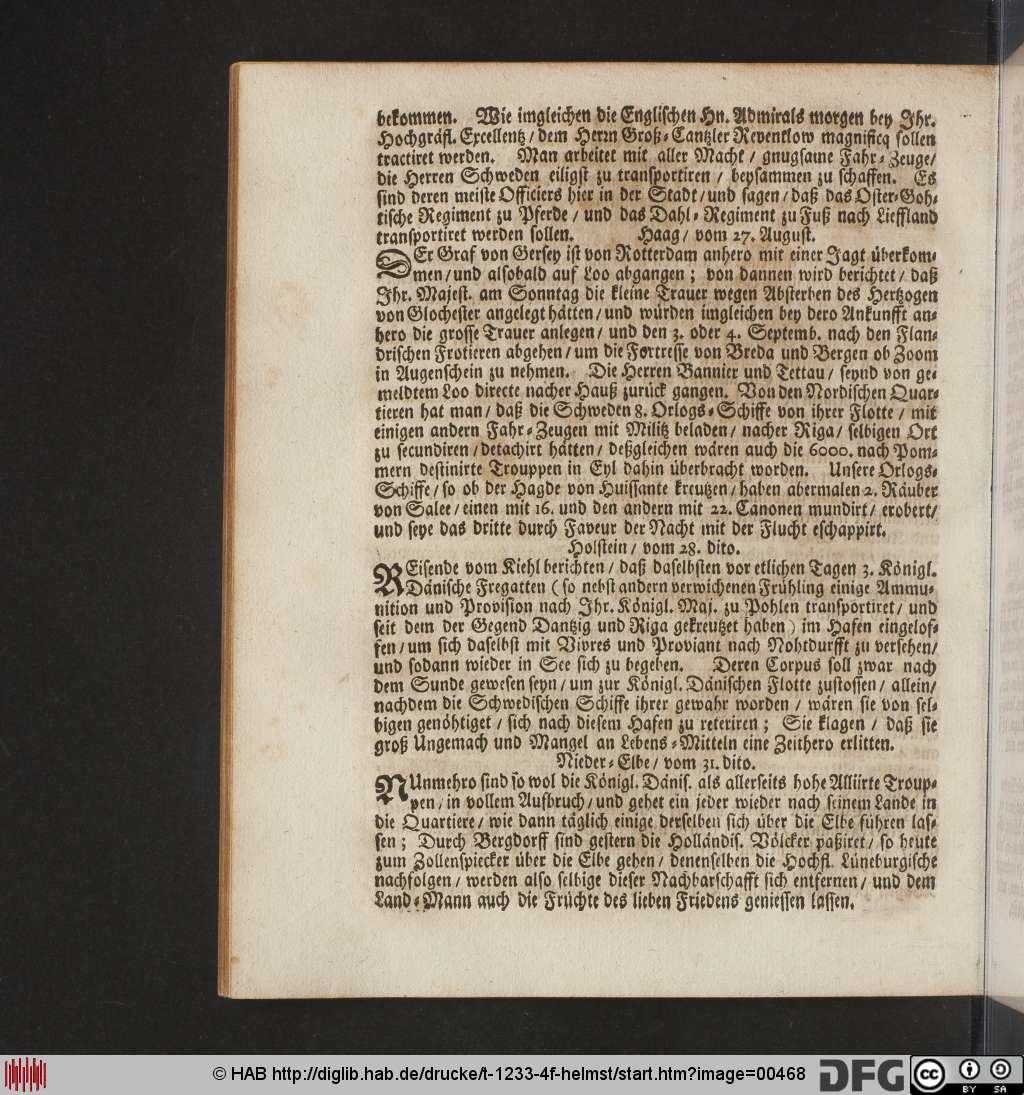 bekommen. Wie imgleichen die Englischen Hn. Admirals morgen bey Ihr.
Hochgräfl. Excellentz / dem Herrn Groß-Cantzler Reventlow magnificq sollen
tractiret werden. Man arbeitet mit aller Macht / gnugsame Fahr-Zeuge/
die Herren Schweden eiligst zu transportiren / beysammen zu schaffen. Es
sind deren meiste Officiers hier in der Stadt / und sagen / daß das Oster-Goh-
tische Regiment zu Pferde / und das Dahl-Regiment zu Fuß nach Lieffland
transportiret werden sollen. Haag / vom 27. August.
DEr Graf von Gersey ist von Rotterdam anhero mit einer Jagt überkom-
men / und alsobald auf Loo abgangen ; von dannen wird berichtet / daß
Ihr. Majest. am Sonntag die kleine Trauer wegen Absterben des Hertzogen
von Glochester angelegt hätten / und würden imgleichen bey dero Ankunfft an-
hero die grosse Trauer anlegen / und den 3. oder 4. Septemb. nach den Flan-
drischen Frotieren abgehen / um die Fortresse von Breda und Bergen ob Zoom
in Augenschein zu nehmen. Die Herren Bannier und Tettau / seynd von ge-
meldtem Loo directe nacher Hauß zurück gangen. Von den Nordischen Quar-
tieren hat man / daß die Schweden 8. Orlogs-Schiffe von ihrer Flotte / mit
einigen andern Fahr-Zeugen mit Militz beladen / nacher Riga / selbigen Ort
zu secundiren / detachirt hätten / deßgleichen wären auch die 6000. nach Pom-
mern destinirte Trouppen in Eyl dahin überbracht worden. Unsere Orlogs-
Schiffe / so ob der Hagde von Huissante kreutzen / haben abermalen 2. Räuber
von Salee / einen mit 16. und den andern mit 22. Canonen mundirt / erobert/
und seye das dritte durch Faveur der Nacht mit der Flucht eschappirt.
Holstein / vom 28. dito.
REisende vom Kiehl berichten / daß daselbsten vor etlichen Tagen 3. Königl.
Dänische Fregatten ( so nebst andern verwichenen Frühling einige Ammu-
nition und Provision nach Ihr. Königl. Maj. zu Pohlen transportiret / und
seit dem der Gegend Dantzig und Riga gekreutzet haben ) im Hafen eingelof-
fen / um sich daselbst mit Vivres und Proviant nach Nohtdurfft zu versehen/
und sodann wieder in See sich zu begeben. Deren Corpus soll zwar nach
dem Sunde gewesen seyn / um zur Königl. Dänischen Flotte zustossen / allein/
nachdem die Schwedischen Schiffe ihrer gewahr worden / wären sie von sel-
bigen genöhtiget / sich nach diesem Hafen zu reteriren ; Sie klagen / daß sie
groß Ungemach und Mangel an Lebens-Mitteln eine Zeithero erlitten.
Nieder-Elbe / vom 31. dito.
NUnmehro sind so wol die Königl. Dänis. als allerseits hohe Alliirte Troup-
pen / in vollem Aufbruch / und gehet ein jeder wieder nach seinem Lande in
die Quartiere / wie dann täglich einige derselben sich über die Elbe führen las-
sen ; Durch Bergdorff sind gestern die Holländis. Völcker paßiret / so heute
zum Zollenspiecker über die Elbe gehen / denenselben die Hochfl. Lüneburgische
nachfolgen / werden also selbige dieser Nachbarschafft sich entfernen / und dem
Land-Mann auch die Früchte des lieben Friedens geniessen lassen.
© HAB http://diglib.hab.de/drucke/t-1233-4f-helmst/start.htm?image=00468
DFG
cc BY SA